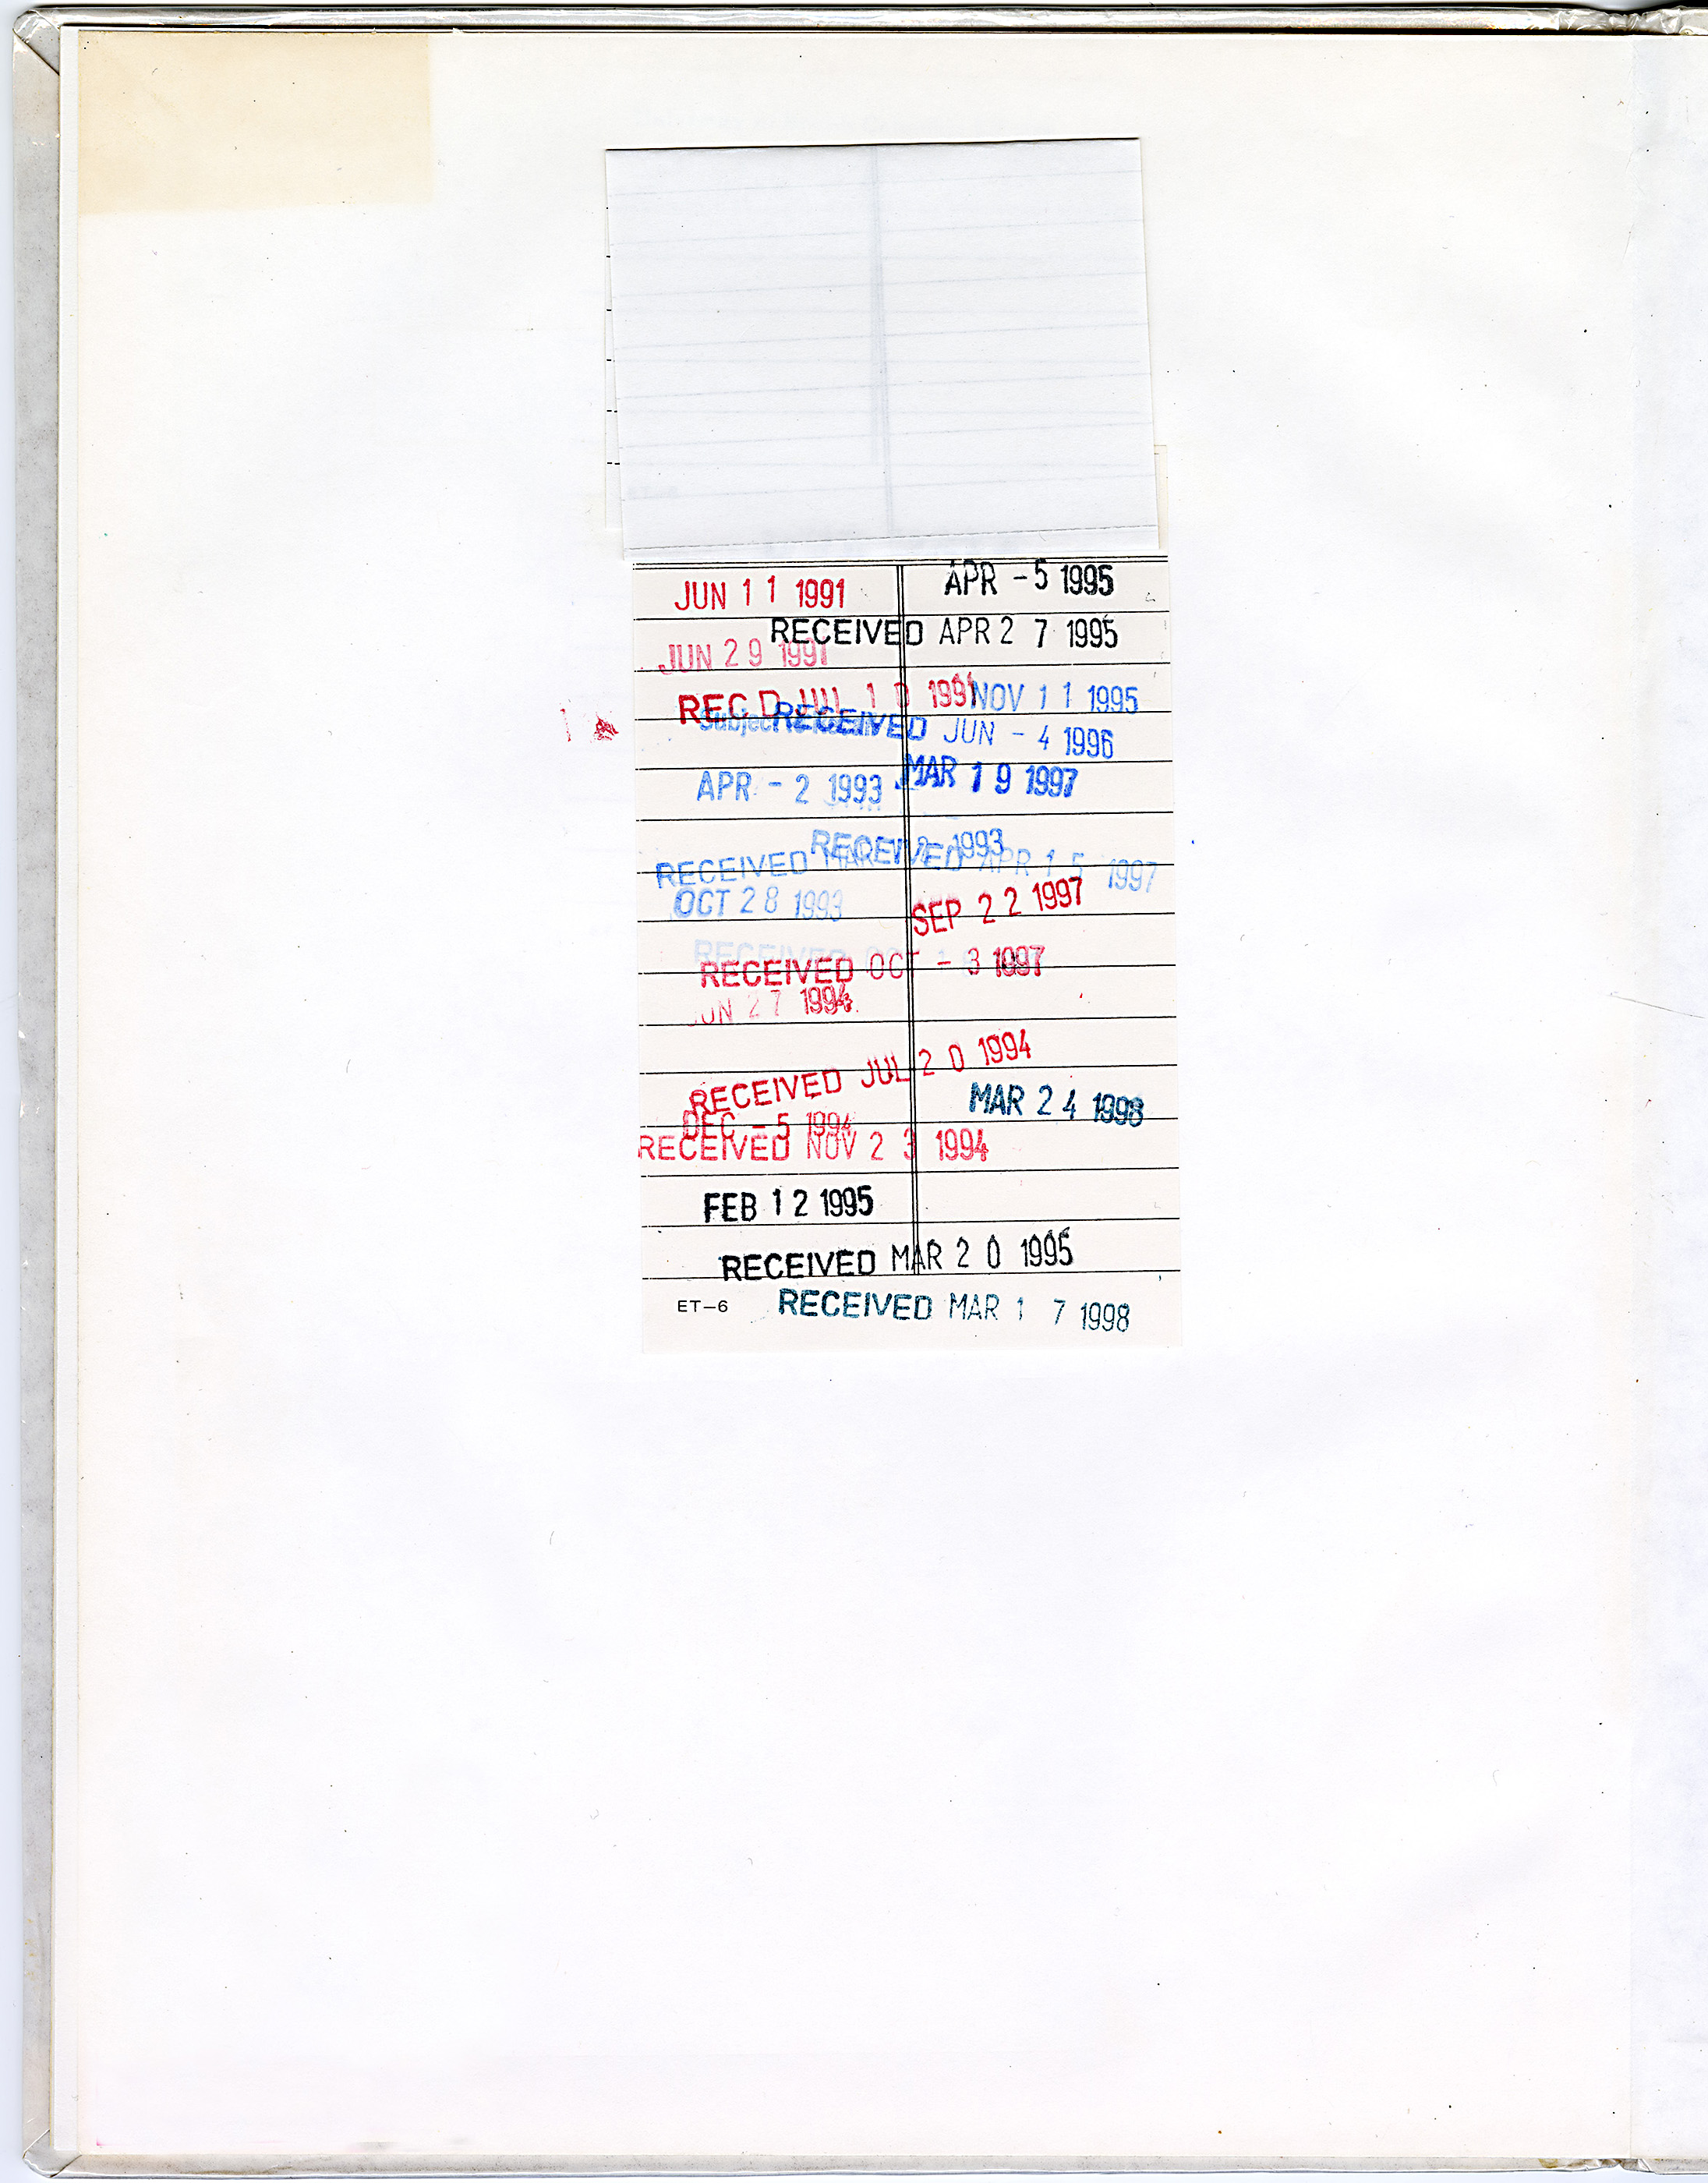 JUN 11 1991
APR -5 1995
RECEIVED APR 27 1995
JUN 29 1991
REC'D JUL 10 1991
NOV 11 1995
Subject
RECEIVED JUN -4 1996
APR -2 1993
MAR 19 1997
RECEIVED 1993
RECEIVED APR 15 1997
OCT 28 1993
SEP 22 1997
RECEIVED
RECEIVED OCT -3 1997
JUN 27 1994
RECEIVED JUL 20 1994
MAR 24 1998
DEC -5 1994
RECEIVED NOV 23 1994
FEB 12 1995
RECEIVED MAR 20 1995
ET-6 RECEIVED MAR 17 1998